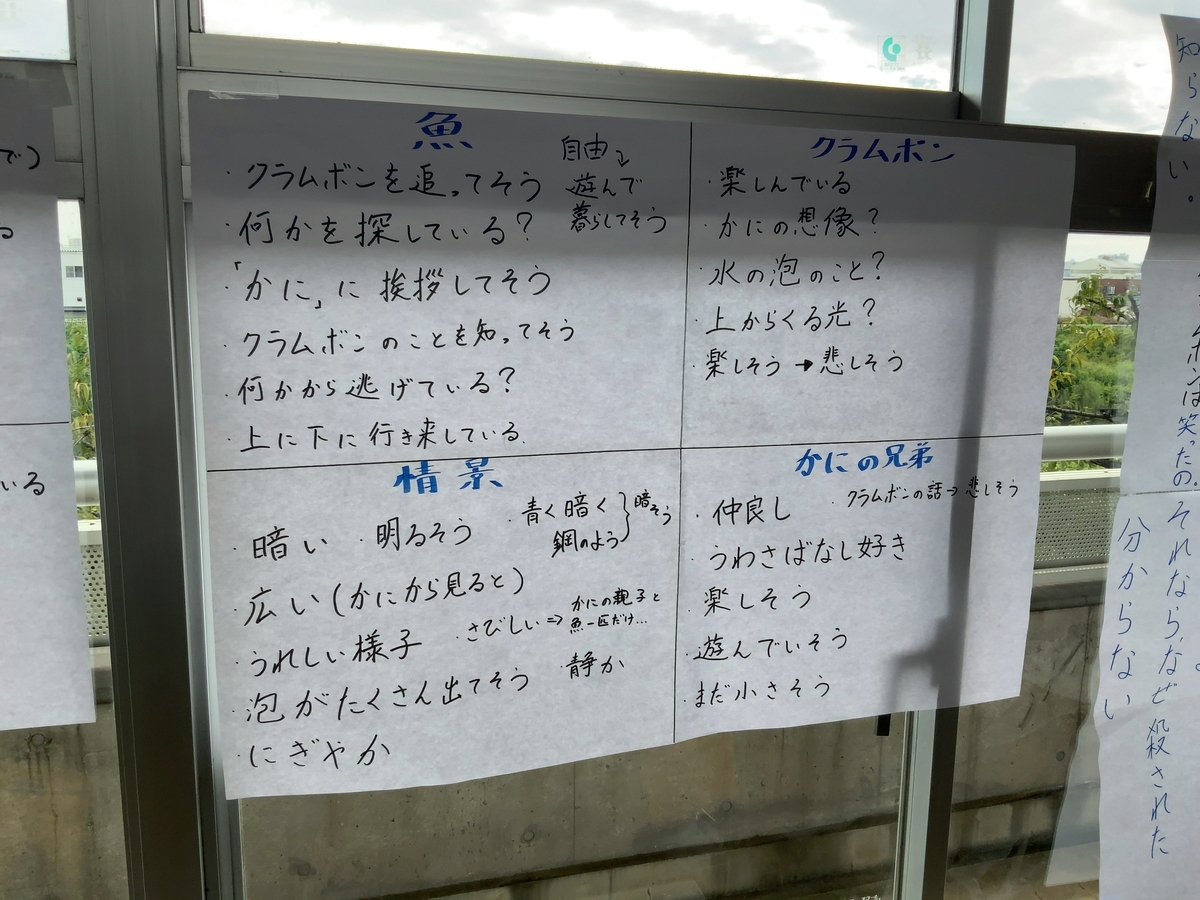 魚
・クラムボンを追ってそう
・何かを探している?
・「かに」に挨拶してそう
・クラムボンのことを知ってそう
・何かから逃げている?
・上に下に行き来している.
自由↴
遊んで
暮らしてそう
クラムボン
・楽しんでいる
・かにの想像?
・水の泡のこと?
・上からくる光?
・楽しそう→悲しそう
情景
・暗い ・明るそう
・青く暗く
鋼のよう
}暗そう
・広い(かにから見ると)
・うれしい様子
・さびしい⇒かにの親子と
魚一匹だけ…
・泡がたくさん出てそう
・静か
・にぎやか
かにの兄弟
・仲良し
・クラムボンの話→悲しそう
・うわさばなし好き
・楽しそう
・遊んでいそう
・まだ小さそう
知らない。
ボンは笑ったの。
それなら、なぜ殺された
分からない
で)
る
いる